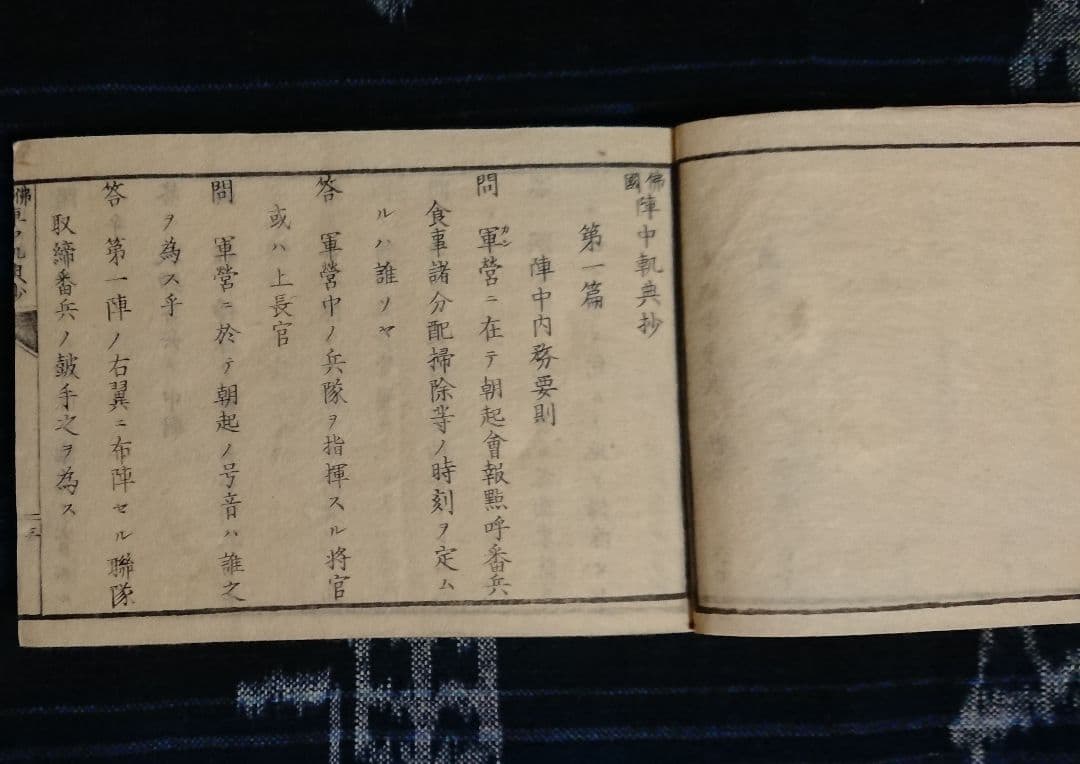 佛國陣中軌典抄
第一篇
陣中内務要則
問 軍営ニ在テ朝起會報點呼番兵
食事諸分配掃除等ノ時刻ヲ定ム
ルハ誰ソヤ
答 軍營中ノ兵隊ヲ指揮スル将官
或ハ上長官
問 軍營ニ於テ朝起ノ号音ハ誰之
ヲ為ス乎
答 第一陣ノ右翼ニ布陣セル聯隊
取締番兵ノ皷手之ヲ為ス